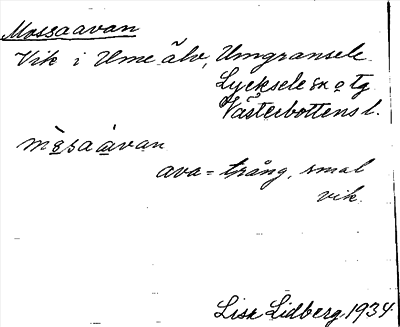 Mossaavan
Vik i Ume älv, Umgransele
Lycksele sn o tg
Västerbottens l.
mòsaàvan
ava = trång, smal
vik.
Lisa Lidberg 1934